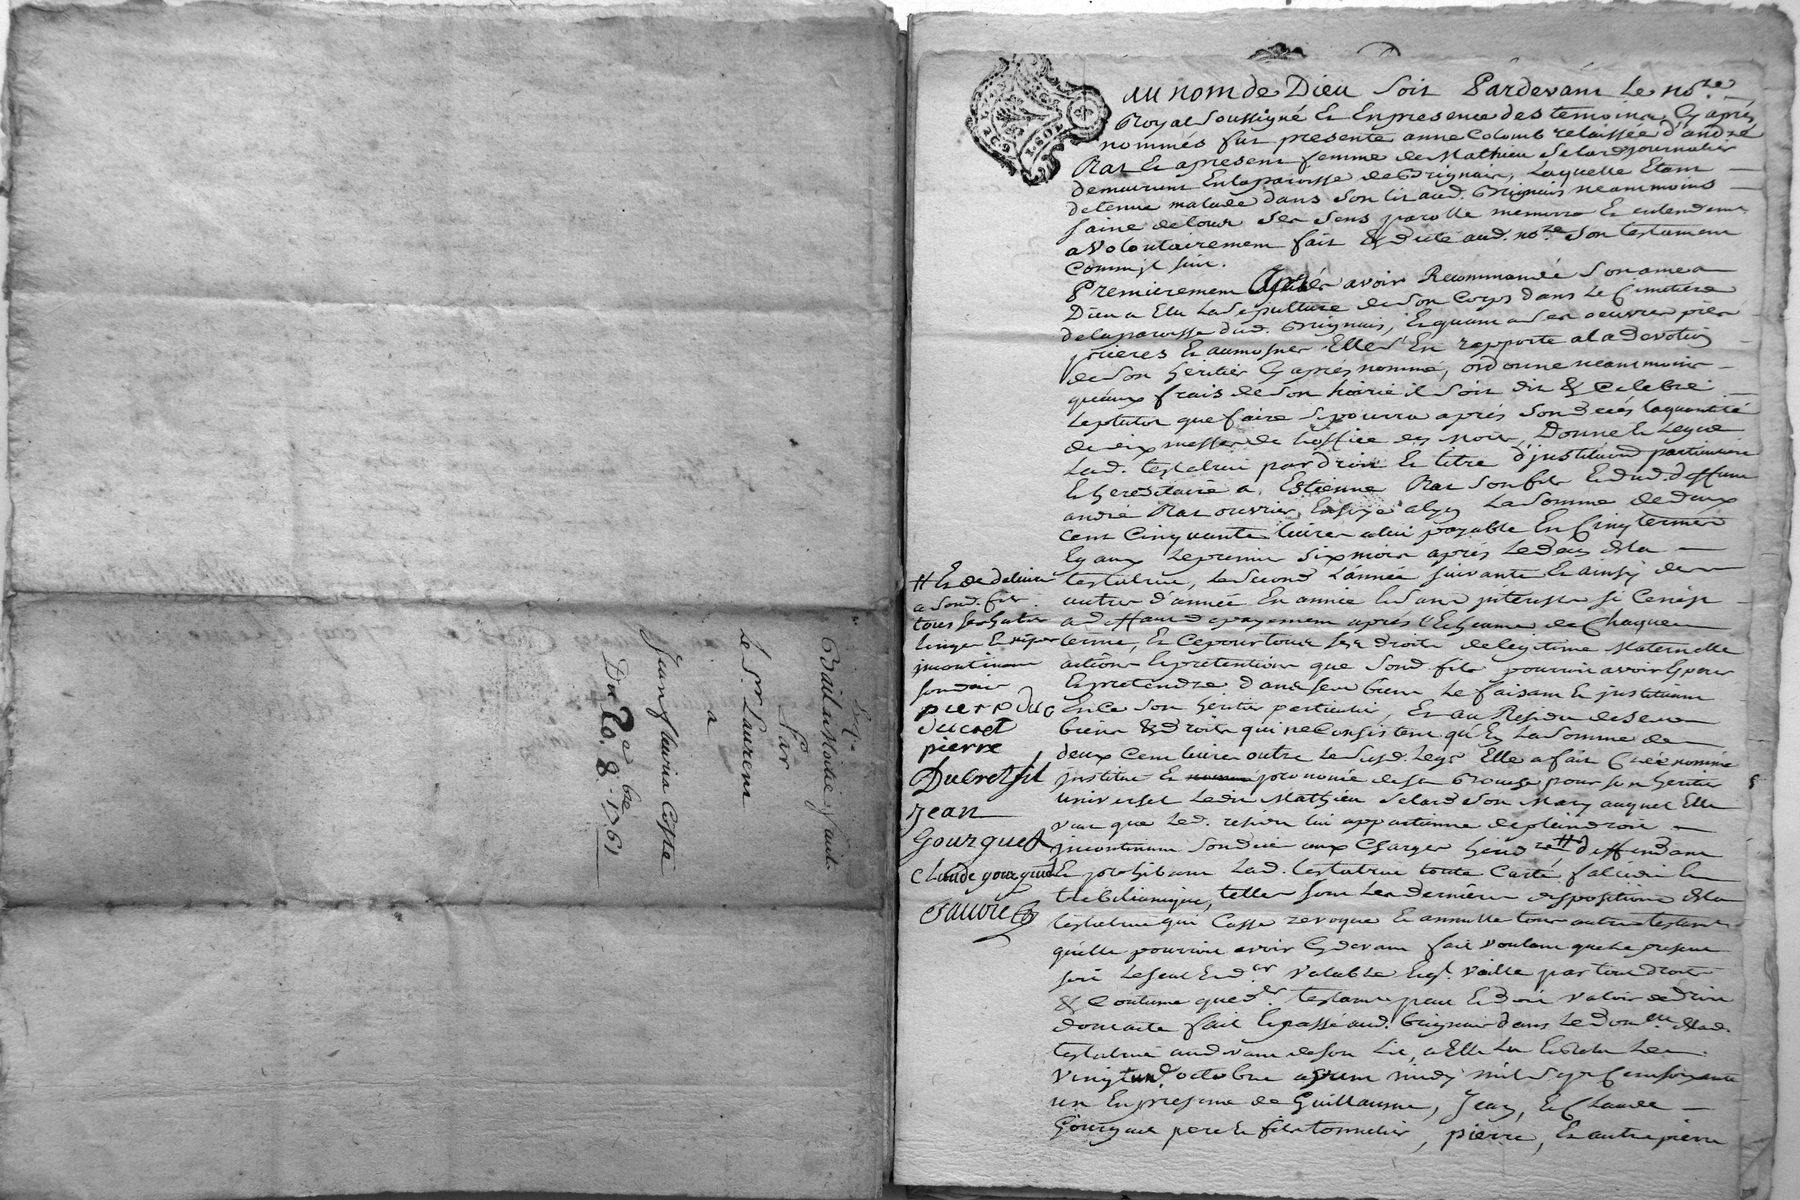 Exp.
Bail a Moitié fruit
Par
Le Sr. Laurent
a
Jean fleurie Cosse
Du 20. 8bre 1761
GEN. LYON
1. SOL
Au nom de Dieu soit Pardevant le nore
Royal soussigné Et En presence des temoins Cy aprés
nommés fut presente anne Colomb relaissée d'andré
Rat Et apresent femme de Mathieu Selard journalier
demeurant En la paroisse de Brignais, laquelle Etant
detenue malade dans son lit aud. Brignais neammoins
saine de tous ses sens parolle memoire Et entendemt
a Volontairement fait & dicté aud. nore son testament
Comm'il suit.
Premierement Aprés avoir Recommandé son ame a
Dieu a Elu la sepulture de son Corps dans le Cimetiere
de la paroisse dud. Brignais, Et quant a ses oeuvres pies
prieres Et aumosnes Elle s'En rapporte a la devotion
de son heritier Cy aprés nommé, ordonne neammoins
qu'aux frais de son hoirie il soit dit & Celebré
le plutot que faire se pourra aprés son decés la quantité
de dix messes de l'office des Morts, Donne Et Legue
Lad. testatrice par droit Et titre d'institution particuliere
Et hereditaire a Estienne Rat son fils Et dud. deffunt
andré Rat ouvrier En soye a lyon La somme de deux
cent Cinquante livres a lui payable En Cinq termes
Egaux le premier six mois aprés le deces de la
testatrice, le second l'année suivante Et ainsy des
autres d'année En année Et sans interest si Ce n'est
a deffaut de payement aprés l'Echeance de Chaque
terme, Et Ce pour tous ses droits de legitime Maternelle
actions Et pretentions que sond. fils pourroit avoir Espérer
Et pretendre dans ses biens le faisant Et instituant
En Ce son heritier particulier, Et au Residu de ses
biens & droits qui ne Consistent qu'En la somme de
deux Cent livres outre le susd. Legs Elle a fait Créé nommé
institué Et prononcé de sa bouche pour son heritier
universel ledit Mathieu Selard son Mary auquel Elle
veut que led. residu lui appartienne de plein droit
incontinant son decés aux Charges heredres # deffendant
Et prohibant lad. testatrice toute Carte falcidie Et
trebelianique, telles sont les dernieres dispositions de la
testatrice qui Casse revoque Et annulle tous autres testamt
qu'elle pourroit avoir Cy devant fait voulant que le present
soit le seul Et der valable Et ql. vaille par tous droits
& Coutume que der testament peut Et doit valoir de droit
dont acte fait Et passé aud. Brignais dans le domlle de lad.
testatrice au devant de son lit, a Elle lu Et relu le
vingt un octobre apres midy mil sept Cent soixante
un En presence de Guillaume, Jean, Et Claude
Gourguet pere Et fils tonnelier, pierre, Et autre pierre
# Et de delivrer
a sond. fils
tous ses habits
linges
incontinant
son decés
pierre duc
ducret
pierre
Ducret fil
jean
Gourguet
Claude gourguet